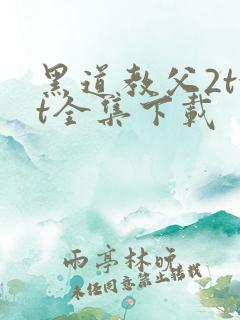 黑道教父2tx
t全集下载
雨亭林晚
未经同意禁止转载